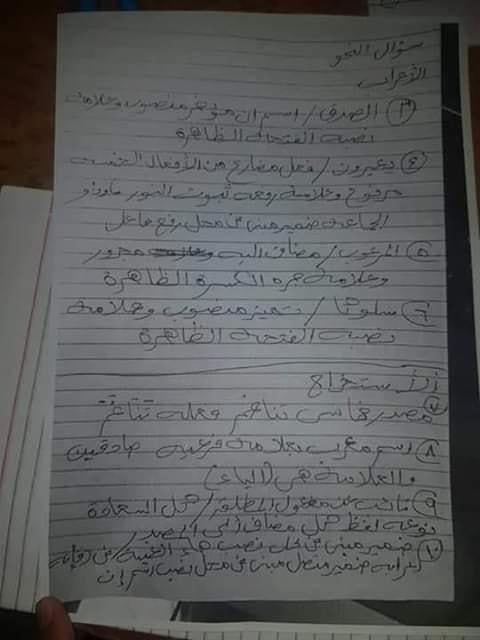 سؤال النحو
الإعراب
٣ الصدق / اسم إن مؤخر منصوب وعلامة
نصبه الفتحة الظاهرة
٤ يعبرون / فعل مضارع من الأفعال الخمسة
مرفوع وعلامة رفعه ثبوت النون وواو
الجماعة ضمير مبنى فى محل رفع فاعل
٥ المرغوب / مضاف اليه مجرور
وعلامة جره الكسرة الظاهرة
٦ سلوكًا / تمييز منصوب وعلامة
نصبه الفتحة الظاهرة
الاستخراج
٧ مصدر خماسى تناغم فعله تناغم
٨ اسم معرب بعلامة فرعية صادقين
والعلامة هى (الياء)
٩ نائب عن مفعول المطلق / كل السعادة
نوعه لفظ كل مضاف إلى المصدر
١٠ ضمير مبنى فى محل نصب هاء الغيبة / فى
إعرابه ضمير متصل مبنى فى محل نصب اسم إن